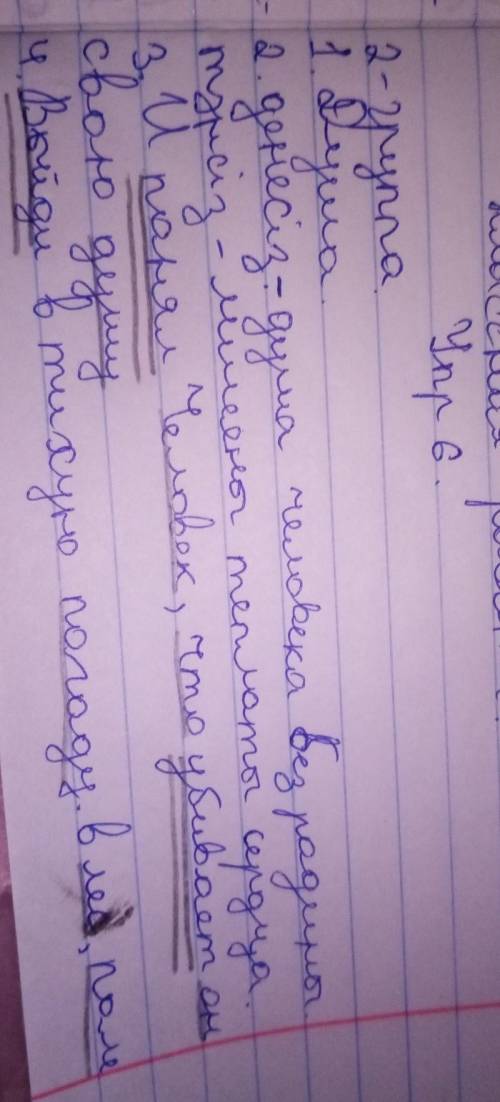 Упр 6.
2-группа.
1. Душа.
2. денесіз - душа человека без радины.
түрсіз - лишены теплаты сердца.
3. И панял человек, что убивает он
свою душу
4. Выйди в тихую погаду. в лес, поле